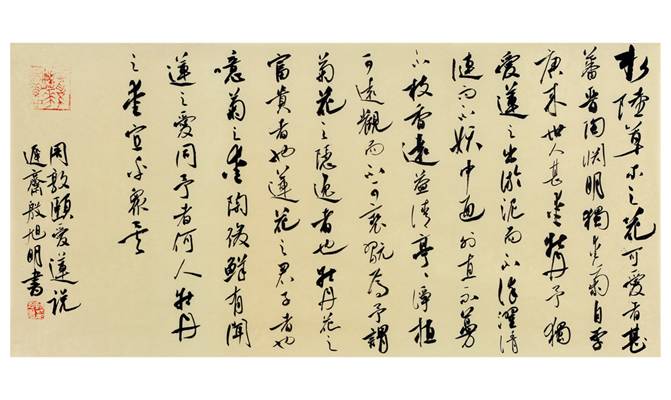 水陸草木之花可愛者甚
蕃晋陶渊明獨愛菊自李
唐来世人甚愛牡丹予獨
愛蓮之出淤泥而不染濯清
漣而不妖中通外直不蔓
不枝香遠益清亭々淨植
可遠觀而不可褻翫焉予謂
菊花之隱逸者也牡丹花之
富貴者也蓮花之君子者也
噫菊之愛陶後鮮有聞
蓮之愛同予者何人牡丹
之愛宜乎衆矣
周敦頤愛蓮説
遲齋殷旭明書